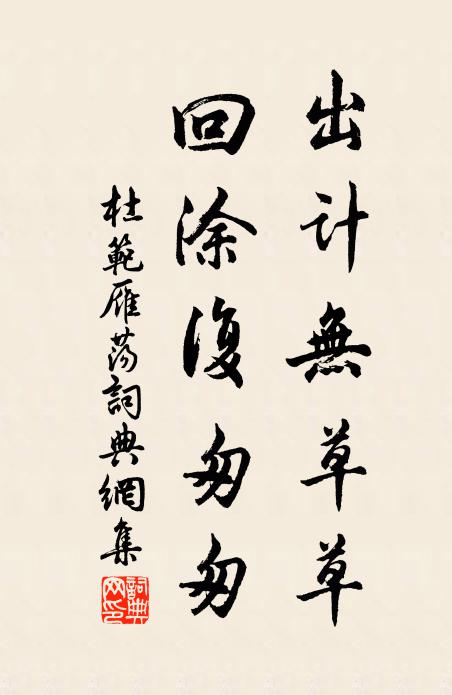 出计無草草
回涂復匆匆
杜範雁荡詞典網集
詞典网印